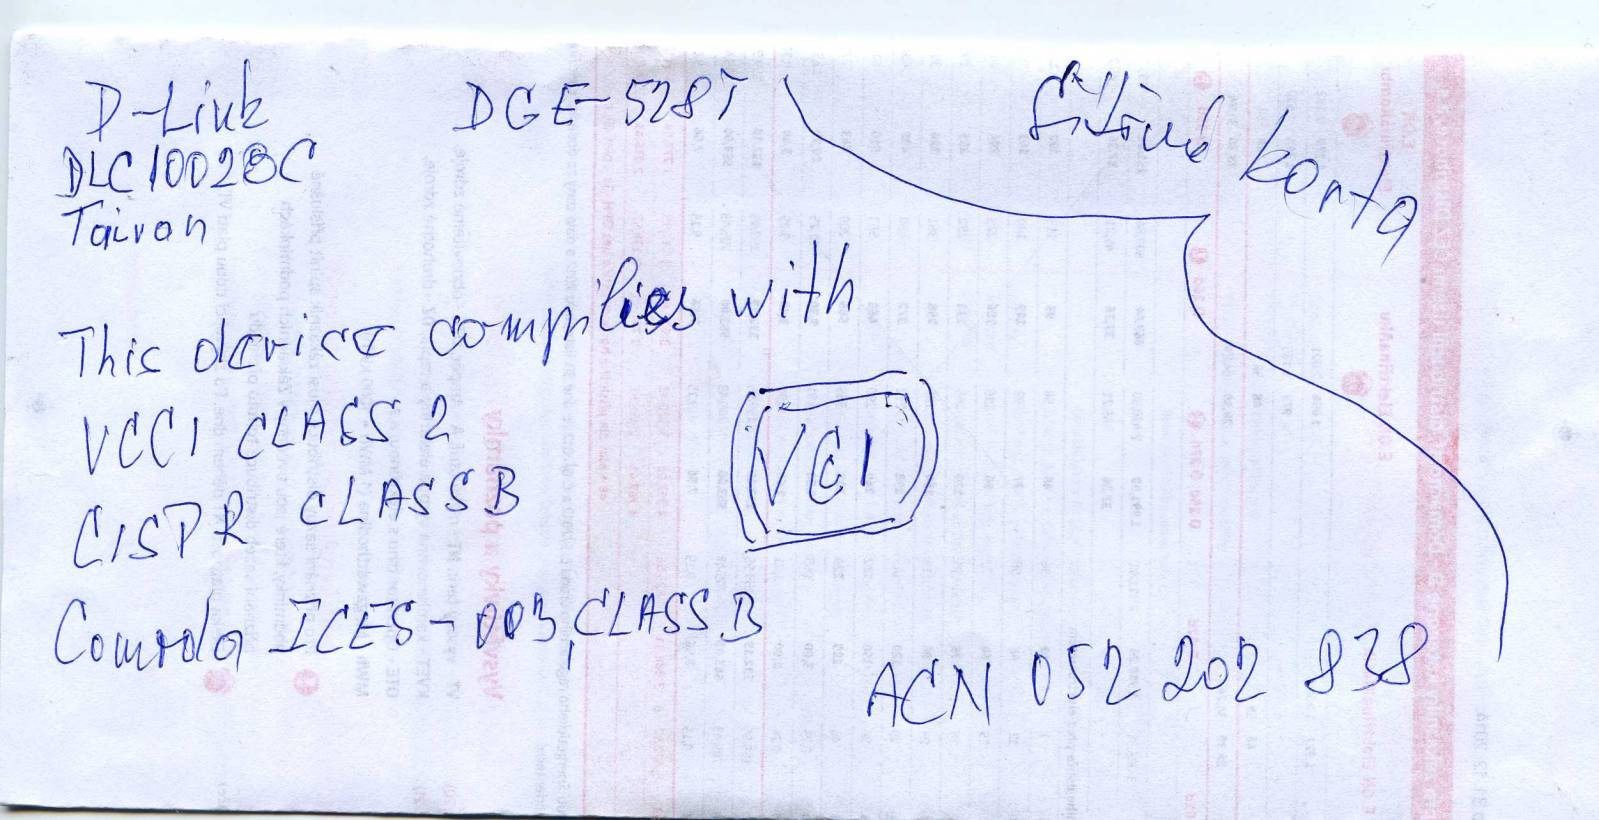 D-Link DGE-528T
Síťová karta
DLC10028C
Taivan
This device compilies with
VCCI CLASS 2
VCI
CISPR CLASS B
Canada ICES-003, CLASS B
ACN 052 202 838